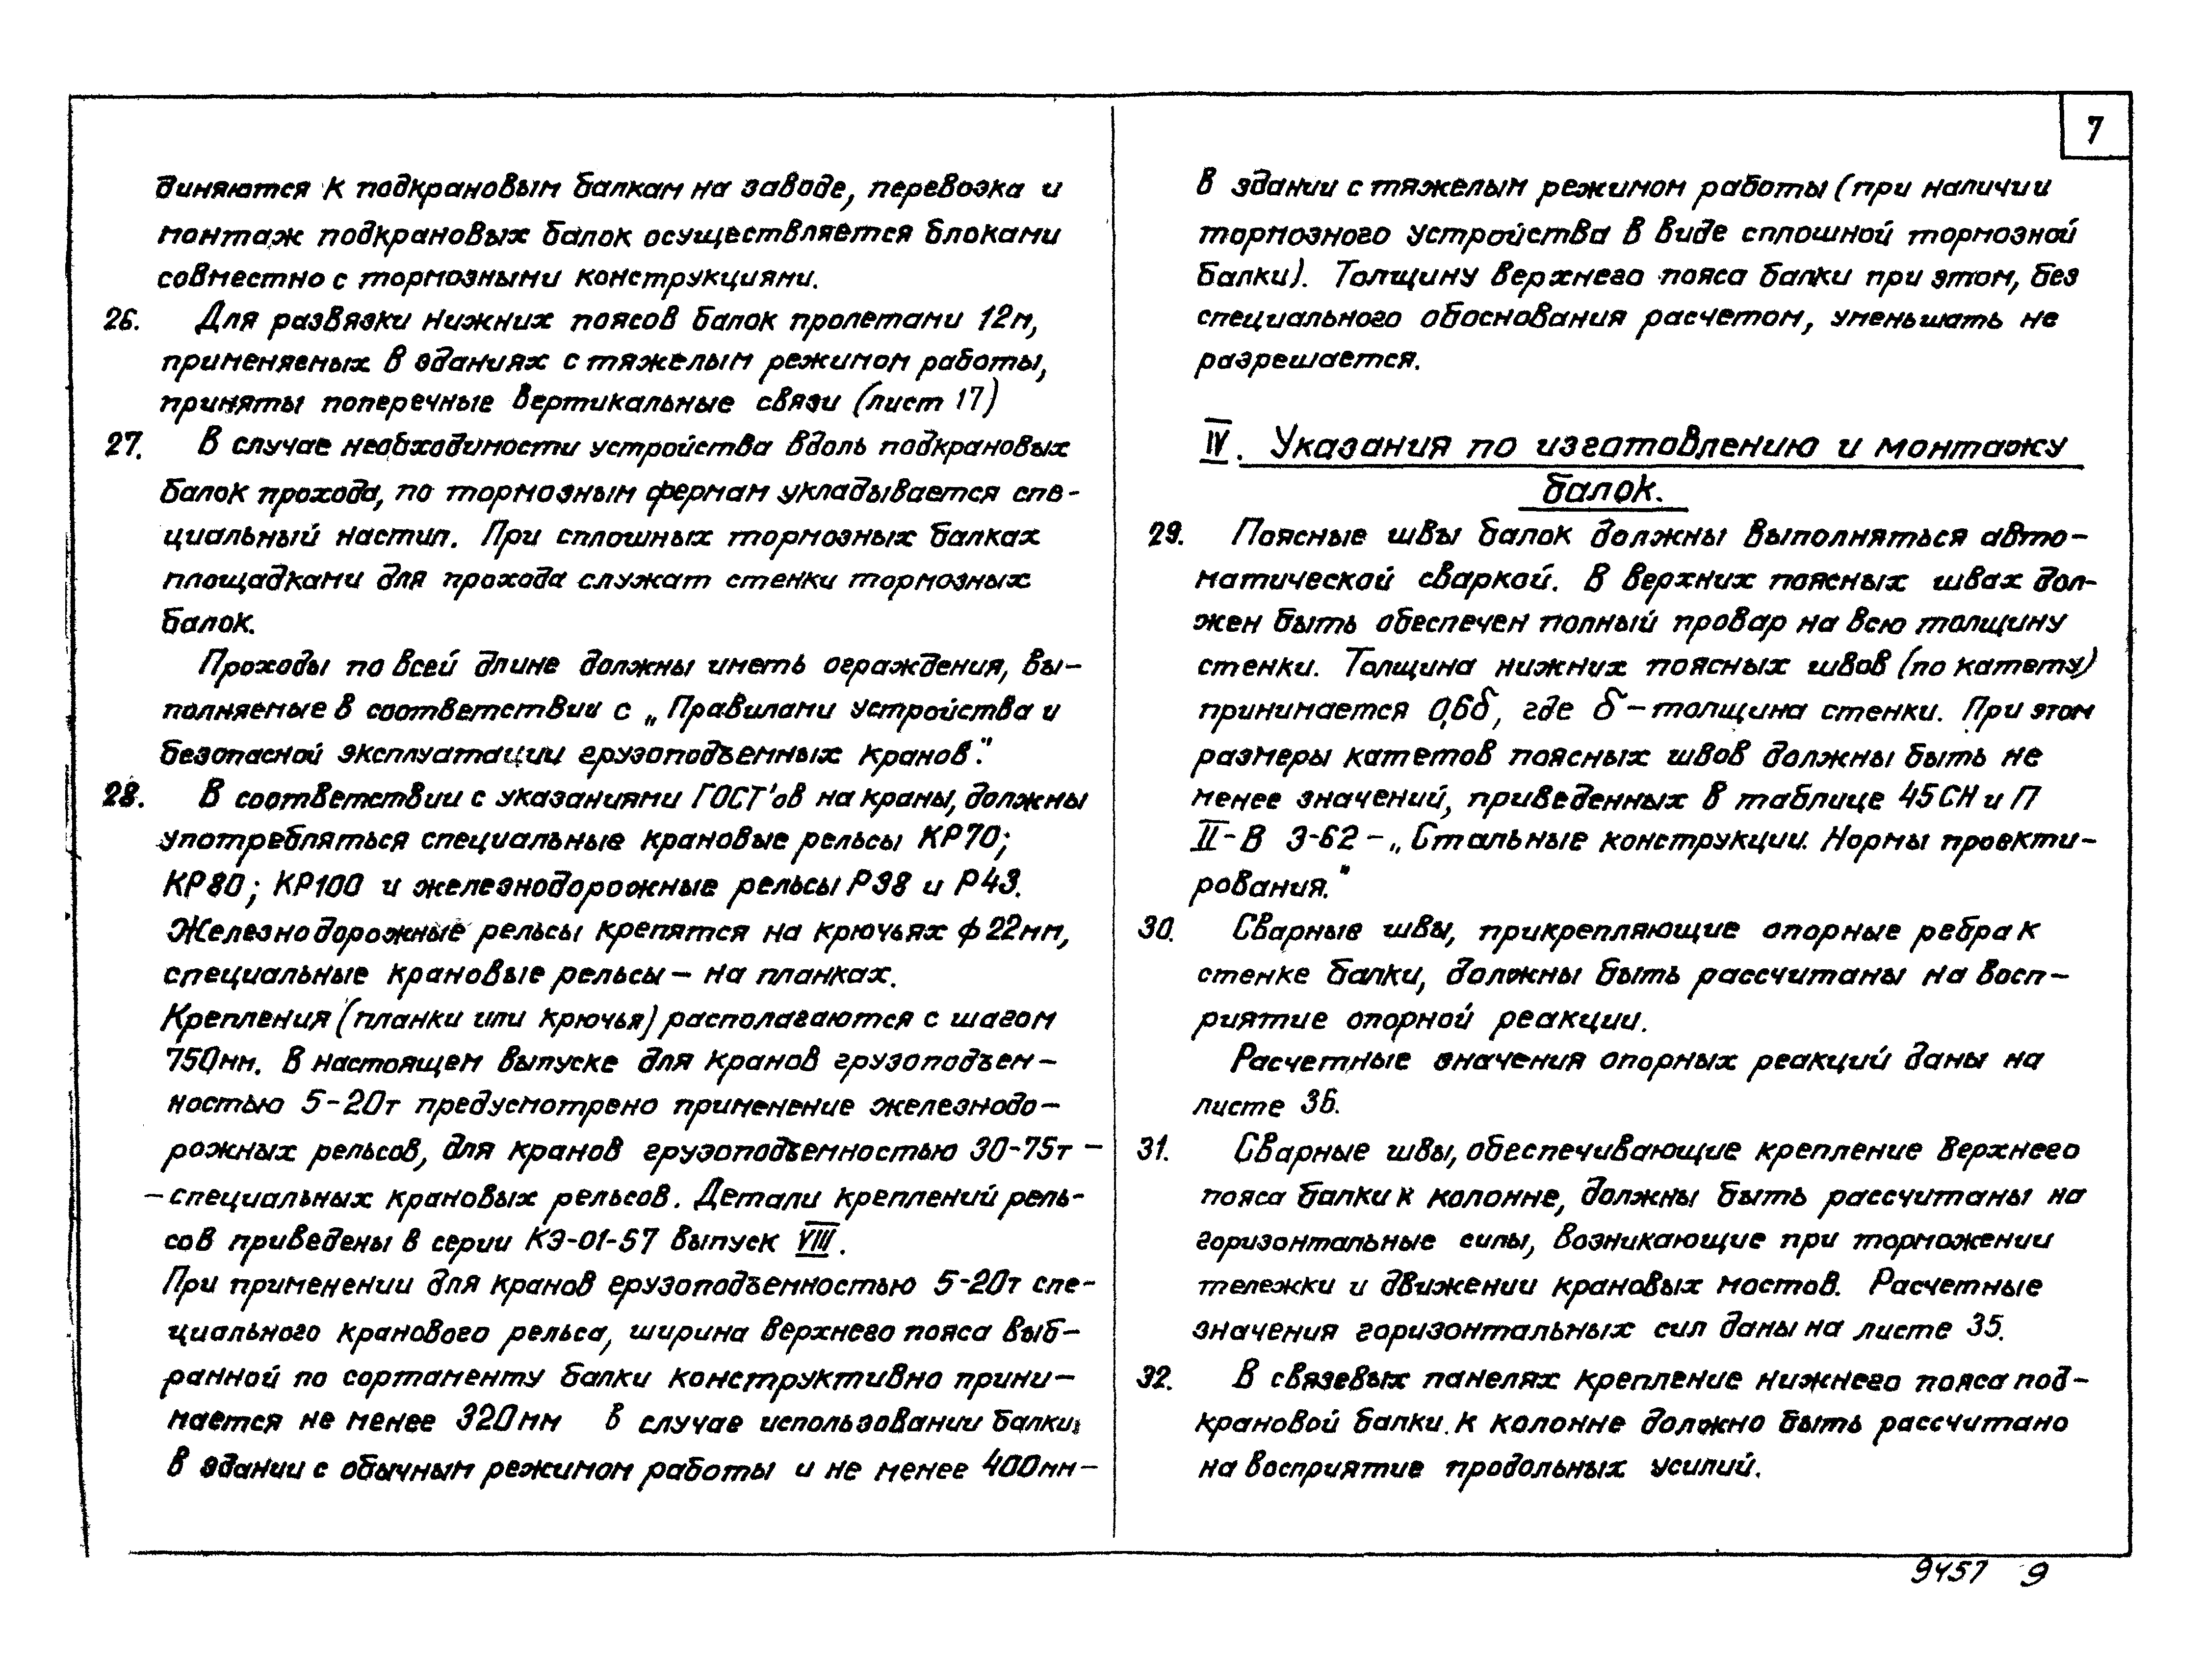 7
диняются к подкрановым балкам на заводе, перевозка и
монтаж подкрановых балок осуществляется блоками
совместно с тормозными конструкциями.
26. Для развязки нижних поясов балок пролетами 12м,
применяемых в зданиях с тяжелым режимом работы,
приняты поперечные вертикальные связи (лист 17)
27. В случае необходимости устройства вдоль подкрановых
балок прохода, по тормозным фермам укладывается спе-
циальный настил. При сплошных тормозных балках
площадками для прохода служат стенки тормозных
балок.
Проходы по всей длине должны иметь ограждения, вы-
полняемые в соответствии с „Правилами устройства и
безопасной эксплуатации грузоподъемных кранов".
28. В соответствии с указаниями ГОСТ'ов на краны, должны
употребляться специальные крановые рельсы КР70;
КР80; КР100 и железнодорожные рельсы Р38 и Р43.
Железнодорожные рельсы крепятся на крючьях ф 22мм,
специальные крановые рельсы – на планках.
Крепления (планки или крючья) располагаются с шагом
750мм. В настоящем выпуске для кранов грузоподъем-
ностью 5-20т предусмотрено применение железнодо-
рожных рельсов, для кранов грузоподъемностью 30-75т –
– специальных крановых рельсов. Детали креплений рель-
сов приведены в серии КЭ-01-57 выпуск VIII.
При применении для кранов грузоподъемностью 5-20т спе-
циального кранового рельса, ширина верхнего пояса выб-
ранной по сортаменту балки конструктивно прини-
мается не менее 320мм в случае использовании балки
в здании с обычным режимом работы и не менее 400мм –
в здании с тяжелым режимом работы (при наличии
тормозного устройства в виде сплошной тормозной
балки). Толщину верхнего пояса балки при этом, без
специального обоснования расчетом, уменьшать не
разрешается.
IV. Указания по изготовлению и монтажу
балок.
29. Поясные швы балок должны выполняться авто-
матической сваркой. В верхних поясных швах дол-
жен быть обеспечен полный провар на всю толщину
стенки. Толщина нижних поясных швов (по катету)
принимается 0,6δ, где δ – толщина стенки. При этом
размеры катетов поясных швов должны быть не
менее значений, приведенных в таблице 45 СН и П
II-В 3-62 – „Стальные конструкции. Нормы проекти-
рования."
30. Сварные швы, прикрепляющие опорные ребра к
стенке балки, должны быть рассчитаны на восп-
риятие опорной реакции.
Расчетные значения опорных реакций даны на
листе 36.
31. Сварные швы, обеспечивающие крепление верхнего
пояса балки к колонне, должны быть рассчитаны на
горизонтальные силы, возникающие при торможении
тележки и движении крановых мостов. Расчетные
значения горизонтальных сил даны на листе 35.
32. В связевых панелях крепление нижнего пояса под-
крановой балки к колонне должно быть рассчитано
на восприятие продольных усилий.
9457 9